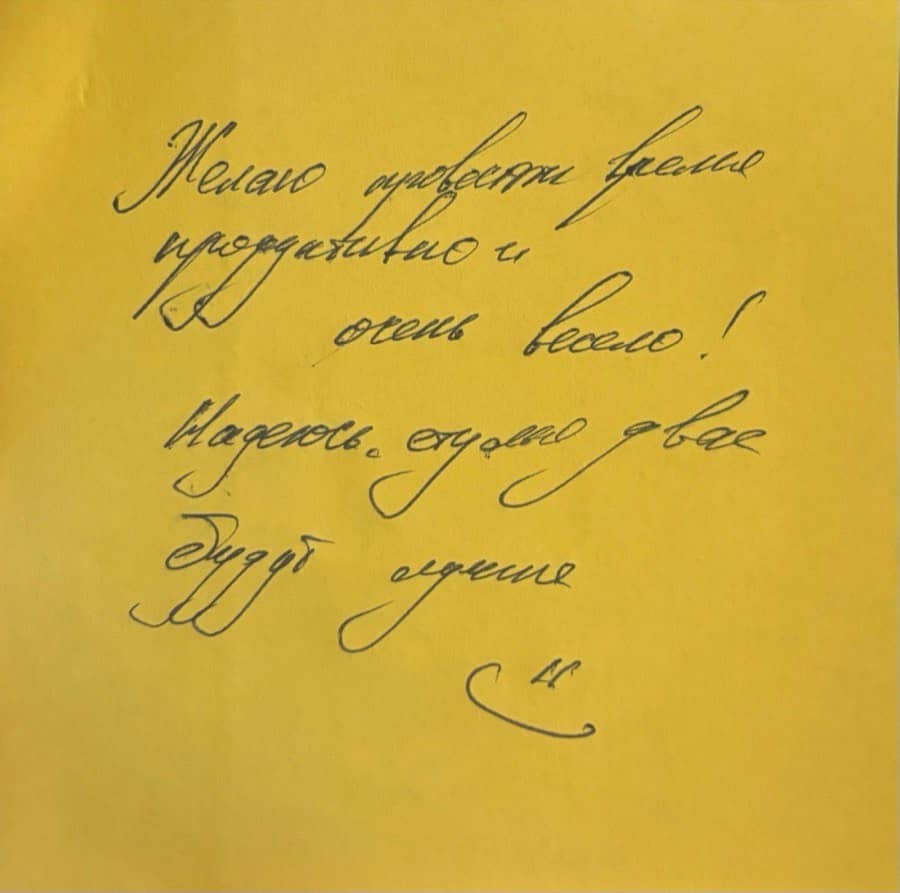 Желаю провести время
продуктивно и
очень весело!
Надеюсь, стулья у вас
будут лучше